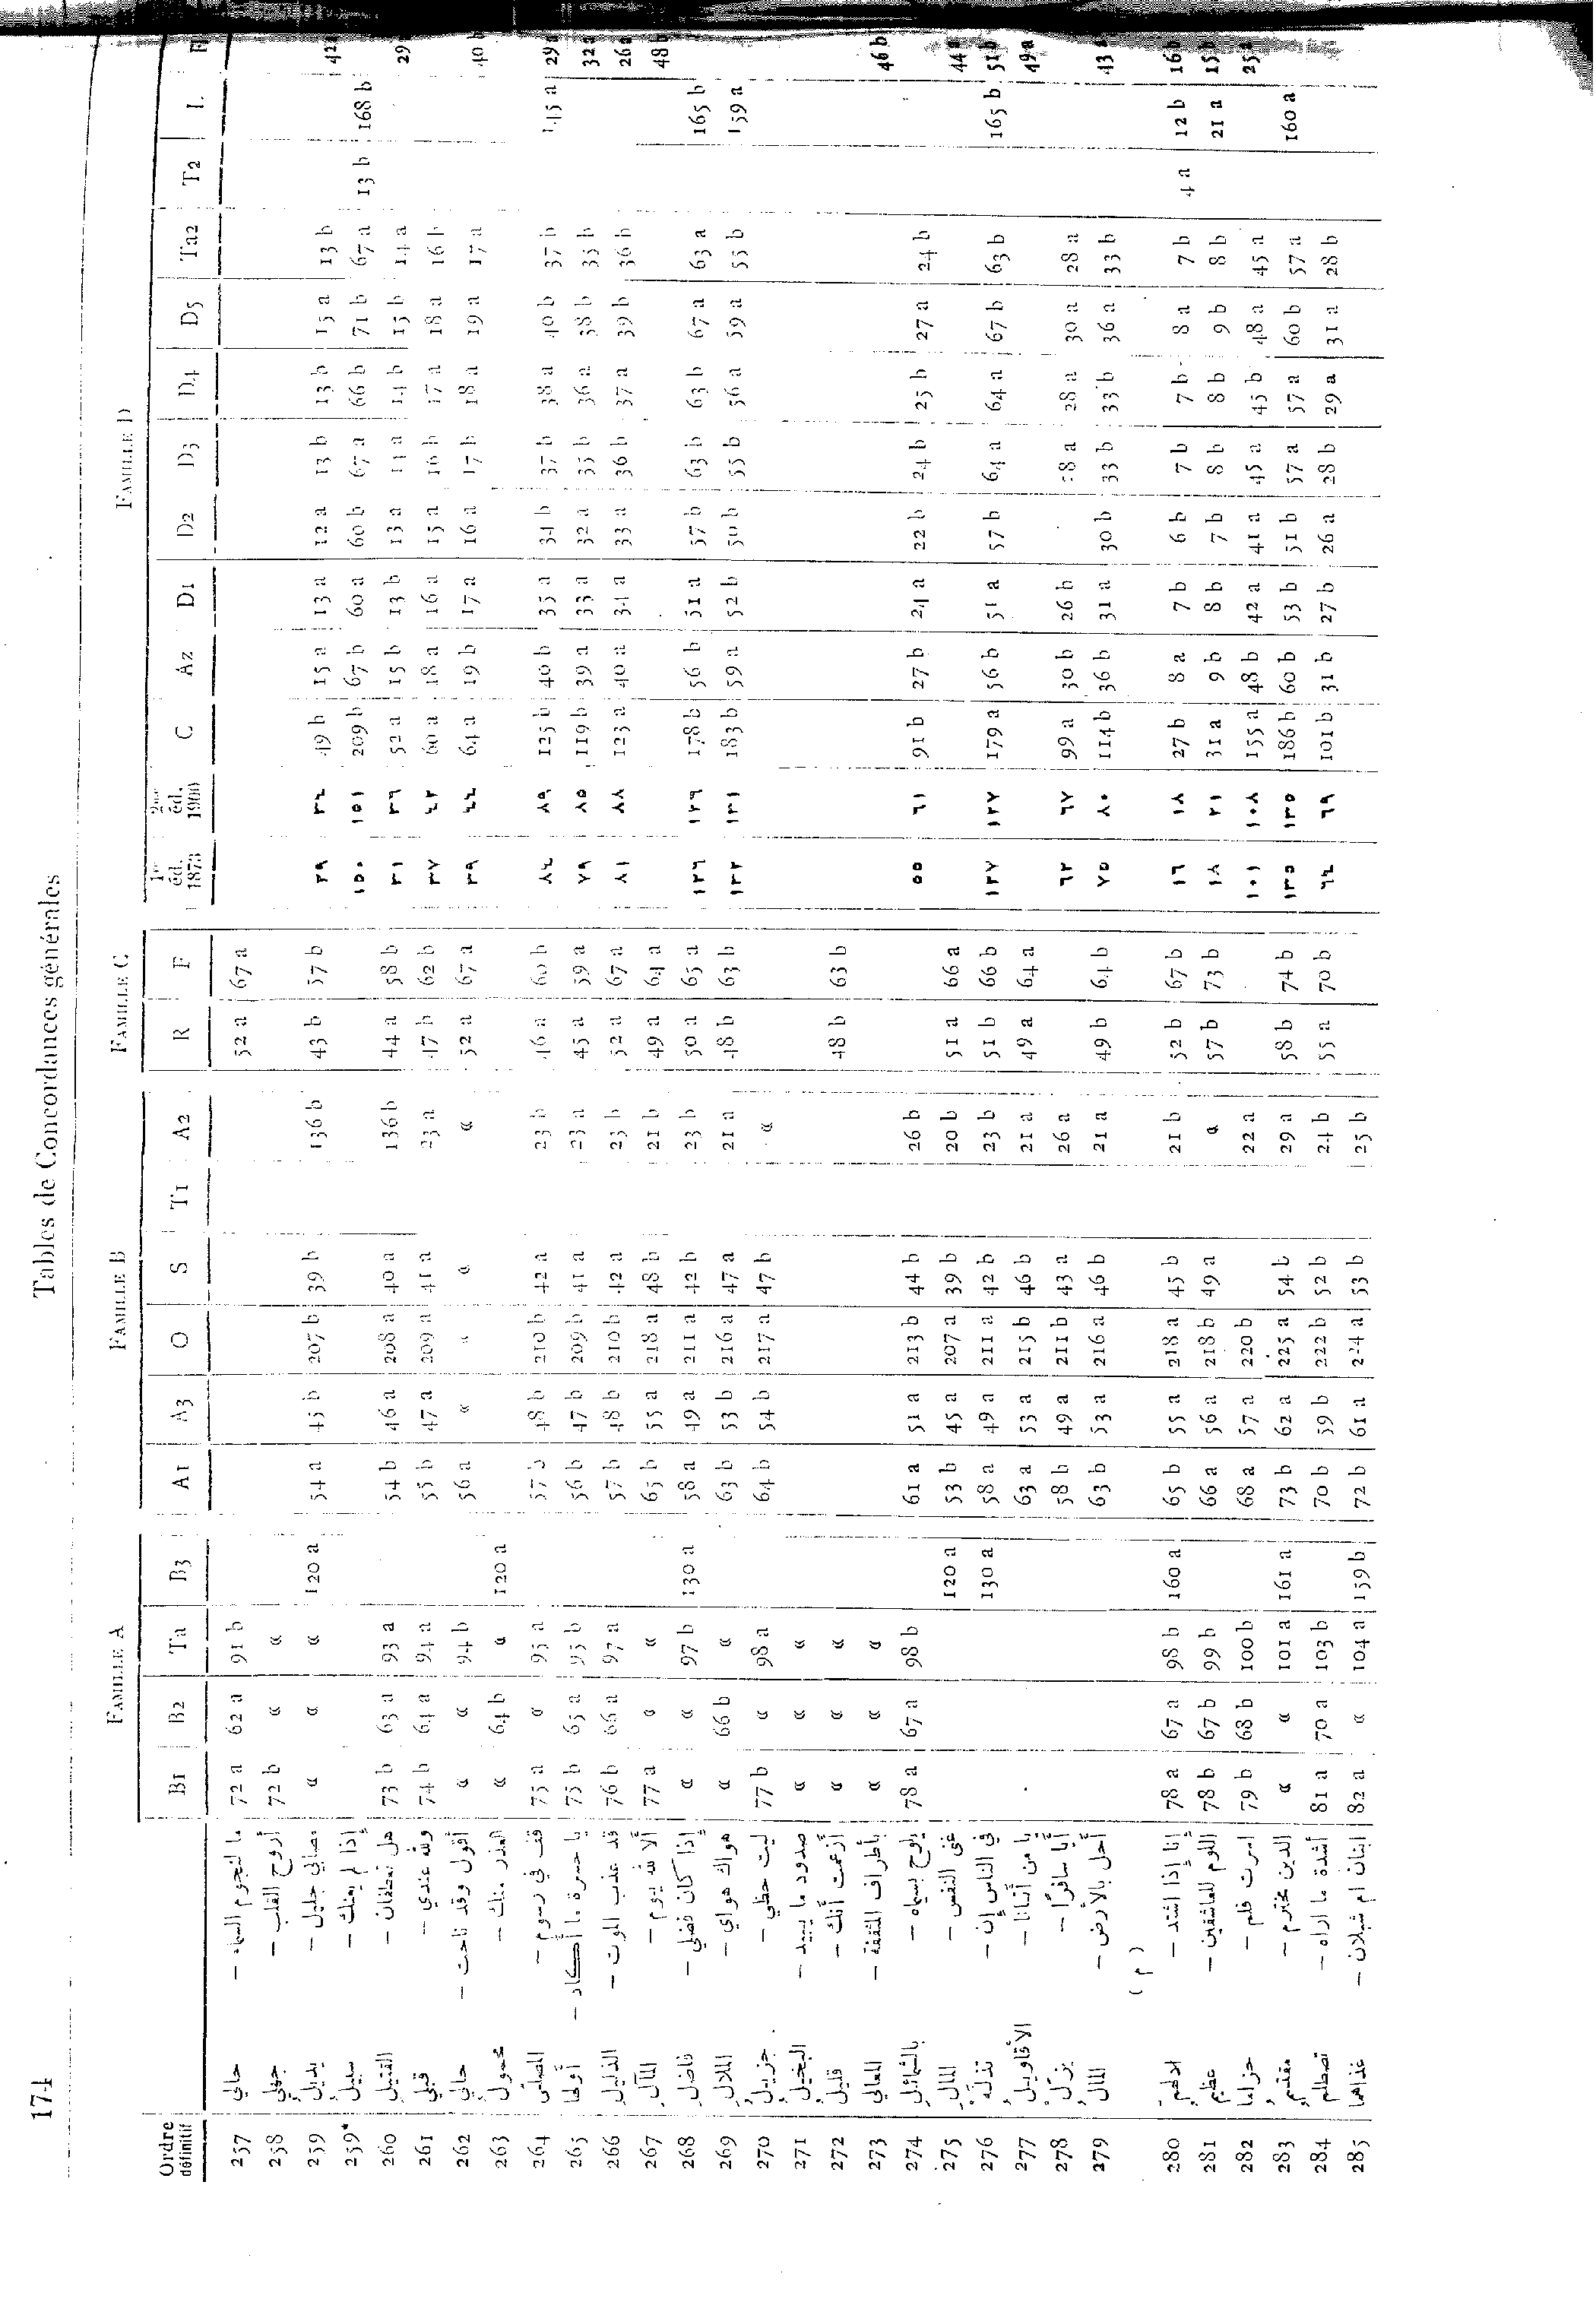 174 Tables de Concordances générales
FAMILLE A FAMILLE B FAMILLE C FAMILLE D
Ordre définitif B1 B2 Ta B3 A1 A3 O S T1 A2 R F 1re éd. 1873 2me éd. 1900 C Az D1 D2 D3 D4 D5 Ta2 T2 L
257 حالي — ما لنجوم السماء 72 a 62 a 91 b 52 a 67 a
258 جهلي — أروح القلب 72 b « «
259 بديل — مصابي جليل « « « 120 a 54 a 45 b 207 b 39 b 136 b 43 b 57 b ٣٩ ٣٤ 49 b 15 a 13 a 12 a 13 b 13 b 15 a 13 b 42 a
259* سبيل — إذا لم يعنك ١٥٠ ١٥١ 209 b 67 b 60 a 60 b 67 a 66 b 71 b 67 a 13 b 168 b
260 القتيل — هل تعطفان 73 b 63 a 93 a 54 b 46 a 208 a 40 a 136 b 44 a 58 b ٣١ ٣٦ 52 a 15 b 13 b 13 a 14 a 14 b 15 b 14 a 29
261 قبلي — ولله عندي 74 b 64 a 94 a 55 b 47 a 209 a 41 a 23 a 47 b 62 b ٣٧ ٤٢ 60 a 18 a 16 a 15 a 16 b 17 a 18 a 16 b
262 حالي — أقول وقد ناحت « « 94 b 56 a « « « « 52 a 67 a ٣٩ ٤٤ 64 a 19 b 17 a 16 a 17 b 18 a 19 a 17 a 40 b
263 محمول — العذر منك « 64 b « 120 a
264 المصلى — قف في رسوم 75 a « 95 a 57 b 48 b 210 b 42 a 23 b 46 a 60 b ٨٤ ٨٩ 125 b 40 b 35 a 34 b 37 b 38 a 40 b 37 b 145 a 29 a
265 أولها — يا حسرة ما أكاد 75 b 65 a 95 b 56 b 47 b 209 b 41 a 23 a 45 a 59 a ٧٩ ٨٥ 119 b 39 a 33 a 32 a 35 b 36 a 38 b 35 b 32 a
266 الذليل — قد عذب الموت 76 b 66 a 97 a 57 b 48 b 210 b 42 a 23 b 52 a 67 a ٨١ ٨٨ 123 a 40 a 34 a 33 a 36 b 37 a 39 b 36 b 26 a
267 المآل — ألا لله يوم 77 a « « 65 b 55 a 218 a 48 b 21 b 49 a 64 a 48 b
268 فاضل — إذا كان فضلي « « 97 b 130 a 58 a 49 a 211 a 42 b 23 b 50 a 65 a ١٢٦ ١٢٦ 178 b 56 b 51 a 57 b 63 b 63 b 67 a 63 a 165 b
269 الملال — هواك هواي « 66 b « 63 b 53 b 216 a 47 a 21 a 48 b 63 b ١٣٢ ١٣١ 183 b 59 a 52 b 50 b 55 b 56 a 59 a 55 b 159 a
270 جزيل — ليت حظي 77 b « 98 a 64 b 54 b 217 a 47 b «
271 البخيل — صدود ما يبيد « « «
272 قليل — أزعمت أنك « « « 48 b 63 b
273 المعالي — بأطراف المثقفة « « « 46 b
274 بالشمائل — يلوح بسيماه 78 a 67 a 98 b 61 a 51 a 213 b 44 b 26 b ٥٥ ٦١ 91 b 27 b 24 a 22 b 24 b 25 b 27 a 24 b
275 المال — غنى النفس 120 a 53 b 45 a 207 a 39 b 20 b 51 a 66 a 44 a
276 تذله — في الناس إن 130 a 58 a 49 a 211 a 42 b 23 b 51 b 66 b ١٢٧ ١٢٧ 179 a 56 b 51 a 57 b 64 a 64 a 67 b 63 b 165 b 51 b
277 الأقاويل — يا من أتانا 63 a 53 a 215 b 46 b 21 a 49 a 64 a 49 a
278 يزل — أيا سافرًا 58 b 49 a 211 b 43 a 26 a ٦٢ ٦٧ 99 a 30 b 26 b 28 a 28 a 30 a 28 a
279 المال — أحل بالأرض 63 b 53 a 216 a 46 b 21 a 49 b 64 b ٧٥ ٨٠ 114 b 36 b 31 a 30 b 33 b 33 b 36 a 33 b 43 a
(م)
280 الادهم — إنا إذا اشتد 78 a 67 a 98 b 160 a 65 b 55 a 218 a 45 b 21 b 52 b 67 b ١٦ ١٨ 27 b 8 a 7 b 6 b 7 b 7 b 8 a 7 b 4 a 12 b 16 b
281 عظيم — اللوم للعاشقين 78 b 67 b 99 b 66 a 56 a 218 b 49 a « 57 b 73 b ١٨ ٢١ 31 a 9 b 8 b 7 b 8 b 8 b 9 b 8 b 21 a 15 b
282 حزاما — اسرت فلم 79 b 68 b 100 b 68 a 57 a 220 b 22 a ١٠١ ١٠٨ 155 a 48 b 42 a 41 a 45 a 45 b 48 a 45 a 25 a
283 مقتسم — الدين مخترم « « 101 a 161 a 73 b 62 a 225 a 54 b 29 a 58 b 74 b ١٣٥ ١٣٥ 186 b 60 b 53 b 51 b 57 a 57 a 60 b 57 a 160 a
284 تصطلم — أشدة ما اراه 81 a 70 a 103 b 70 b 59 b 222 b 52 b 24 b 55 a 70 b ٦٤ ٦٩ 101 b 31 b 27 b 26 a 28 b 29 a 31 a 28 b
285 غذاهما — ابنان ام شبلان 82 a « 104 a 159 b 72 b 61 a 224 a 53 b 25 b